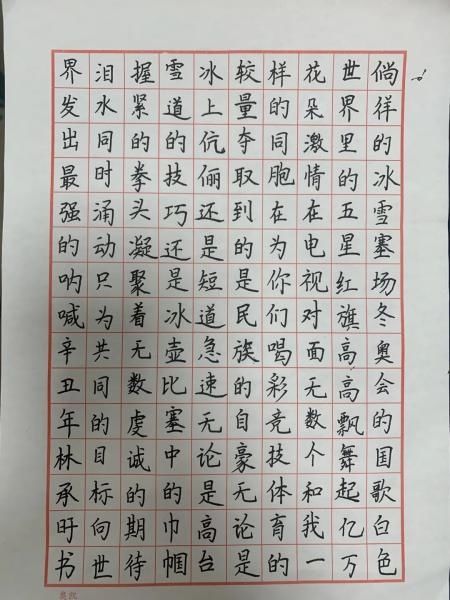 倘徉的冰雪塞场冬奥会的国歌白色
世界里的五星红旗高高飘舞起亿万
花朵激情在电视对面无数个和我一
样的同胞在为你们喝彩竞技体育的
较量夺取到的是民族的自豪无论是
冰上伉俪还是短道急速无论是高台
雪道的技巧还是冰壶比塞中的巾帼
握紧的拳头凝聚着无数虔诚的期待
泪水同时涌动只为共同的目标向世
界发出最强的呐喊辛丑年林承旴书